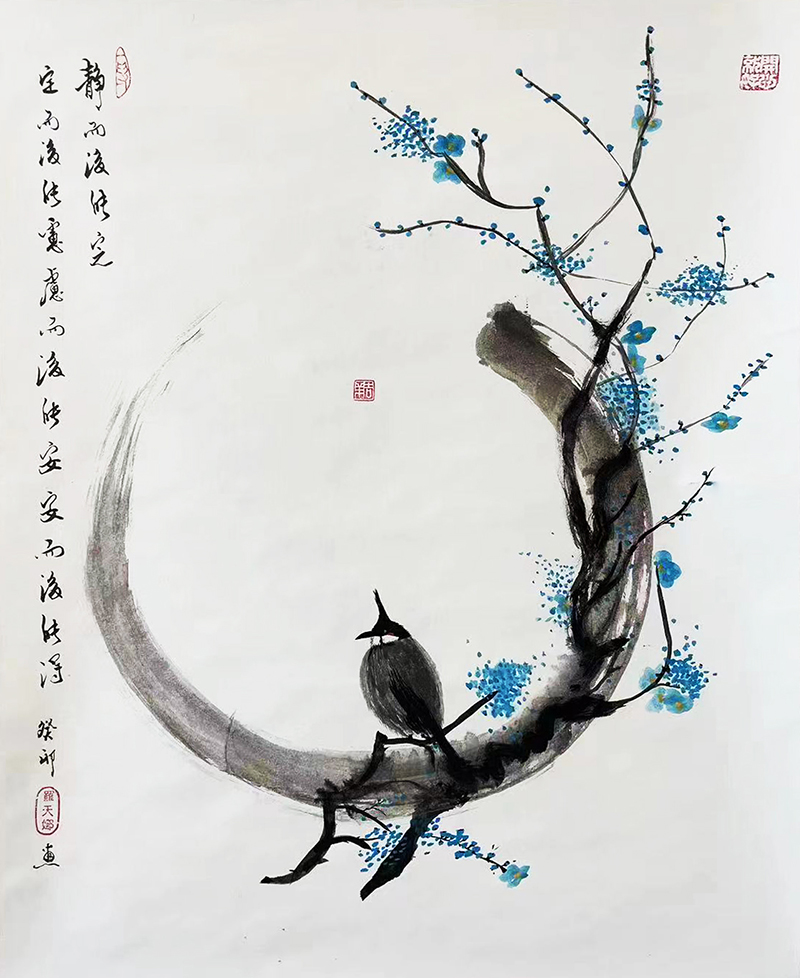 靜而後能定
定而後能慮慮而後能安安而後能得
癸卯
畫